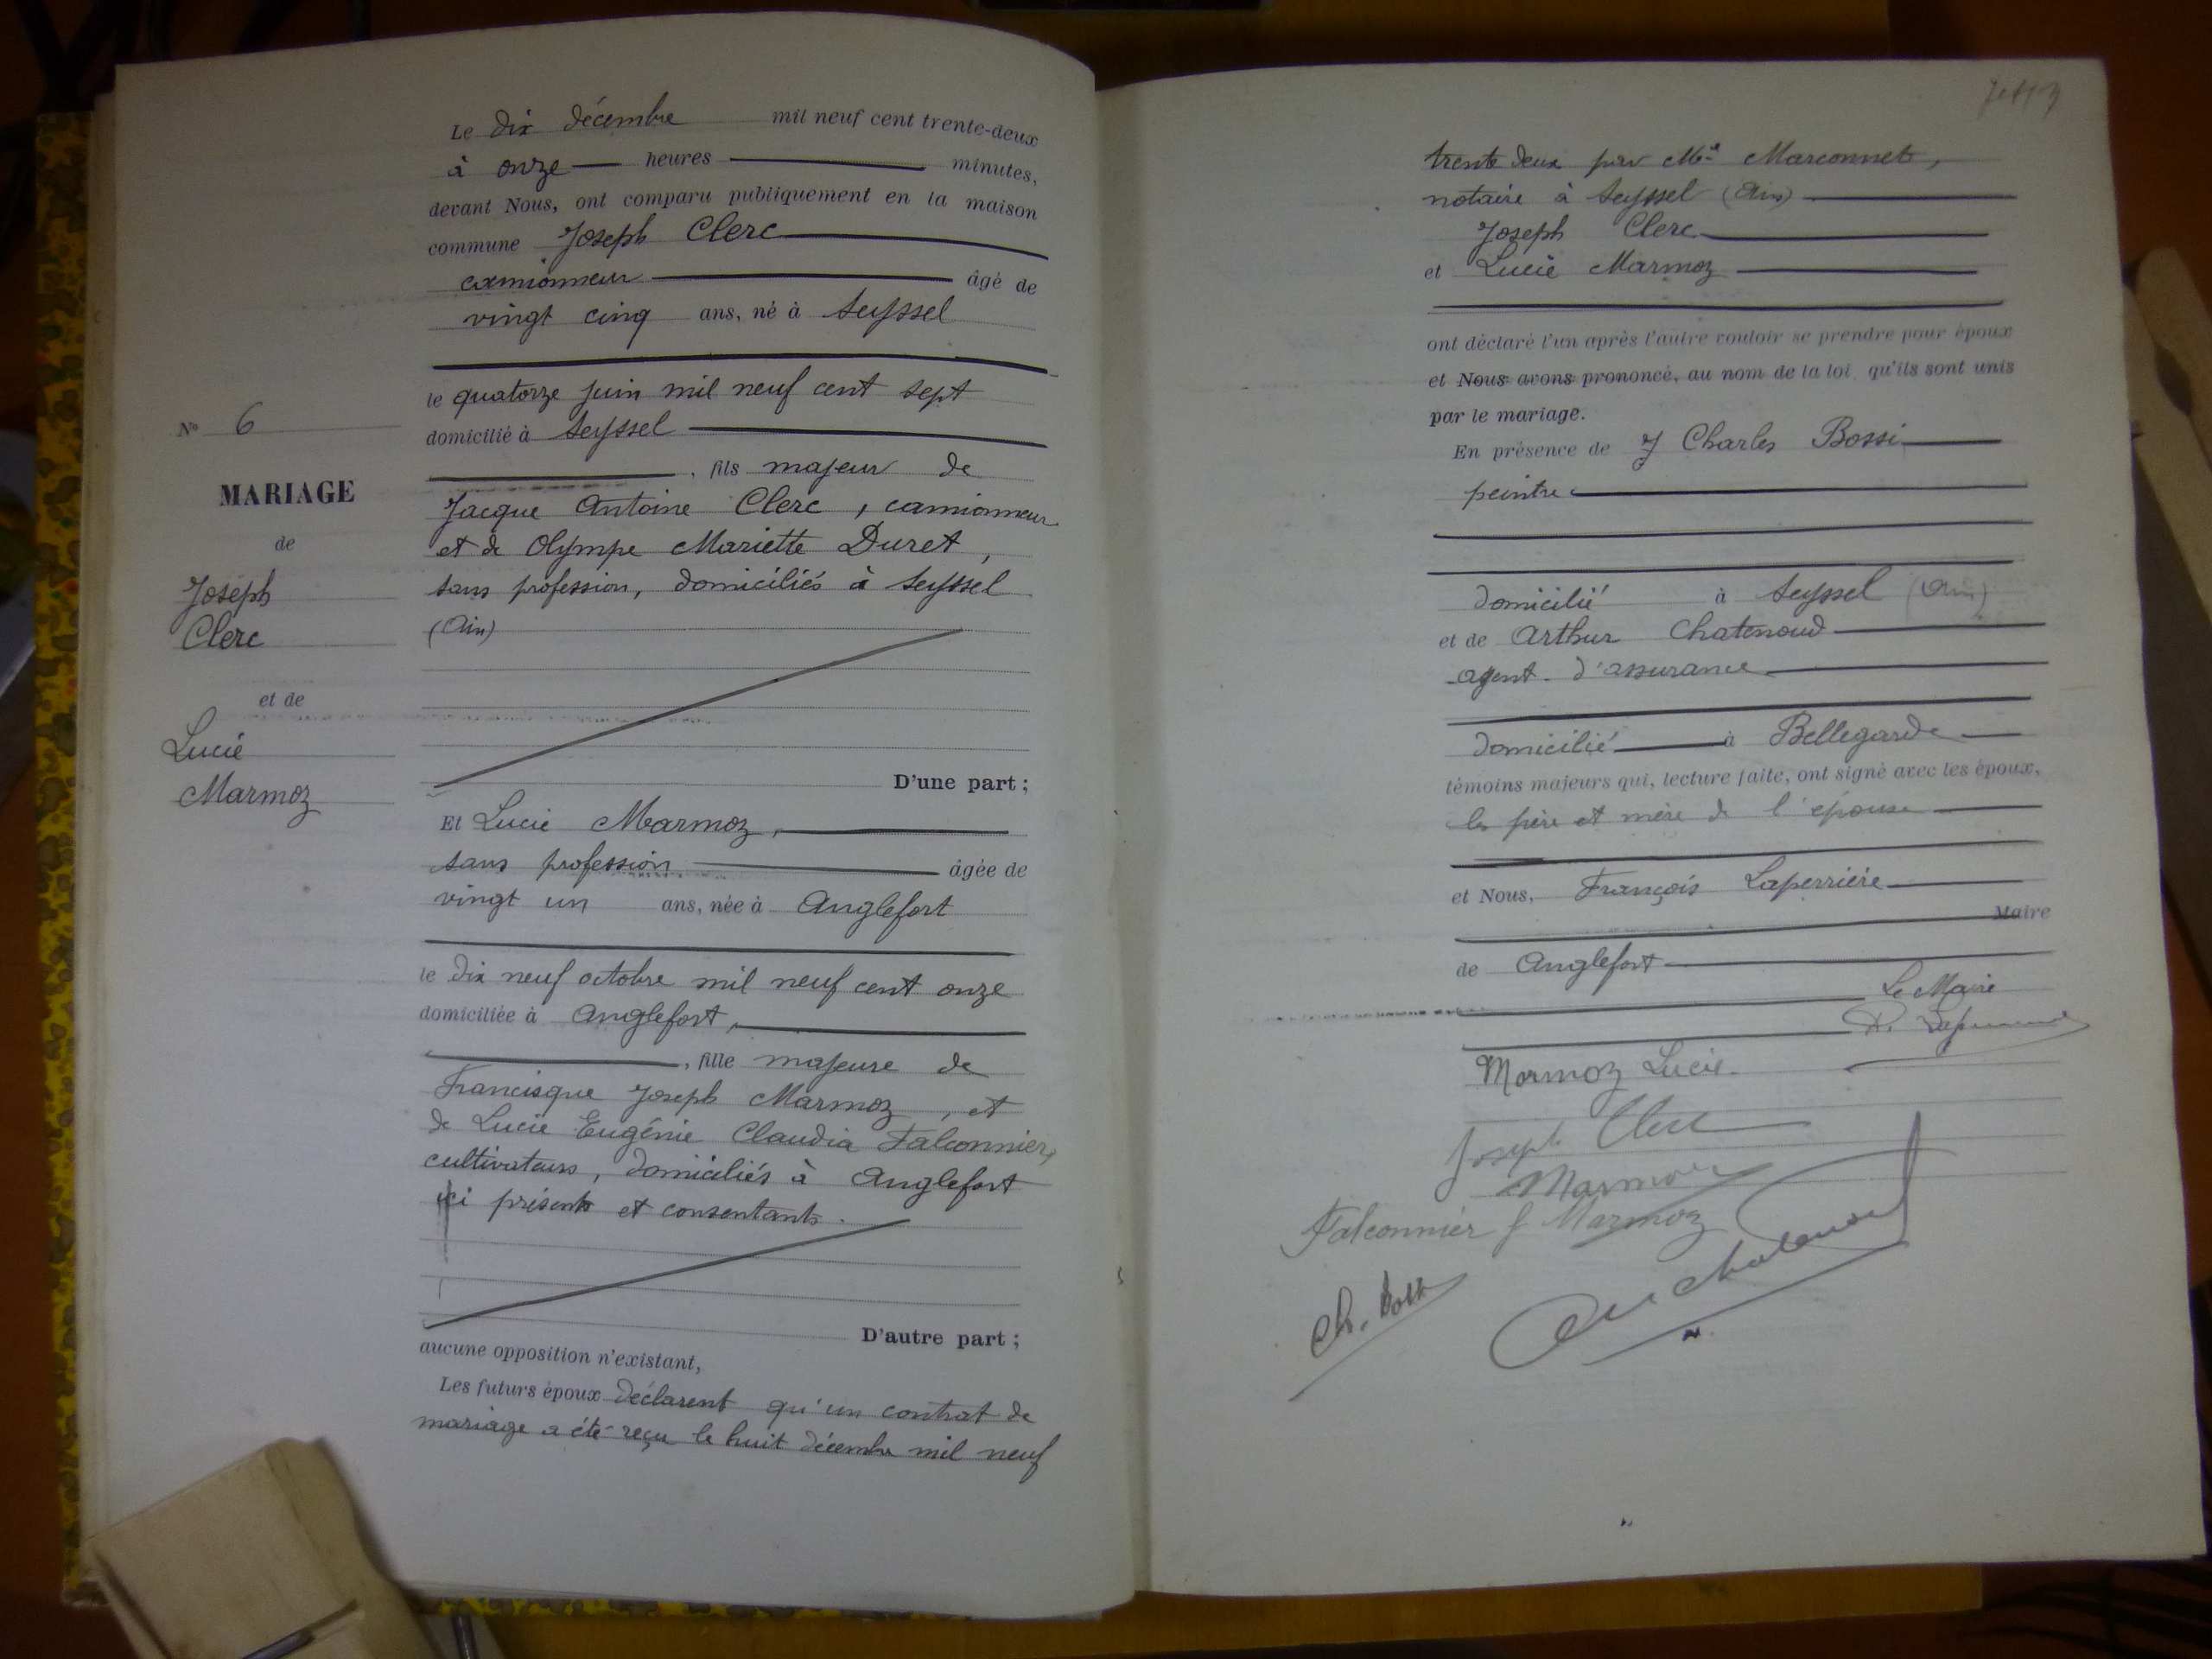 Le dix décembre mil neuf cent trente-deux
à onze heures minutes,
devant Nous, ont comparu publiquement en la maison
commune Joseph Clerc
camionneur âgé de
vingt cinq ans, né à Seyssel
le quatorze juin mil neuf cent sept
domicilié à Seyssel
, fils majeur de
Jacque Antoine Clerc, camionneur
et de Olympe Mariette Duret,
sans profession, domiciliés à Seyssel
(Ain)
D'une part ;
N° 6
MARIAGE
de
Joseph
Clerc
et de
Lucie
Marmoz
Et Lucie Marmoz,
sans profession âgée de
vingt un ans, née à Anglefort
le dix neuf octobre mil neuf cent onze
domiciliée à Anglefort,
, fille majeure de
Francisque Joseph Marmoz, et
de Lucie Eugénie Claudia Falconnier,
cultivateurs, domiciliés à Anglefort
ici présents et consentants.
D'autre part ;
aucune opposition n'existant,
Les futurs époux déclarent qu'un contrat de
mariage a été reçu le huit décembre mil neuf
trente deux par Me Marconnet,
notaire à Seyssel (Ain)
Joseph Clerc
et Lucie Marmoz
ont déclaré l'un après l'autre vouloir se prendre pour époux
et Nous avons prononcé, au nom de la loi, qu'ils sont unis
par le mariage.
En présence de J Charles Bossi
peintre
domicilié à Seyssel (Ain)
et de Arthur Chatenoud
agent d'assurance
domicilié à Bellegarde
témoins majeurs qui, lecture faite, ont signé avec les époux,
les père et mère de l'épouse
et Nous, François Laperrière
Maire
de Anglefort
Le Maire
Marmoz Lucie
Joseph Clerc
Marmoz
Falconnier f Marmoz
Ch. Bossi
Chatenoud